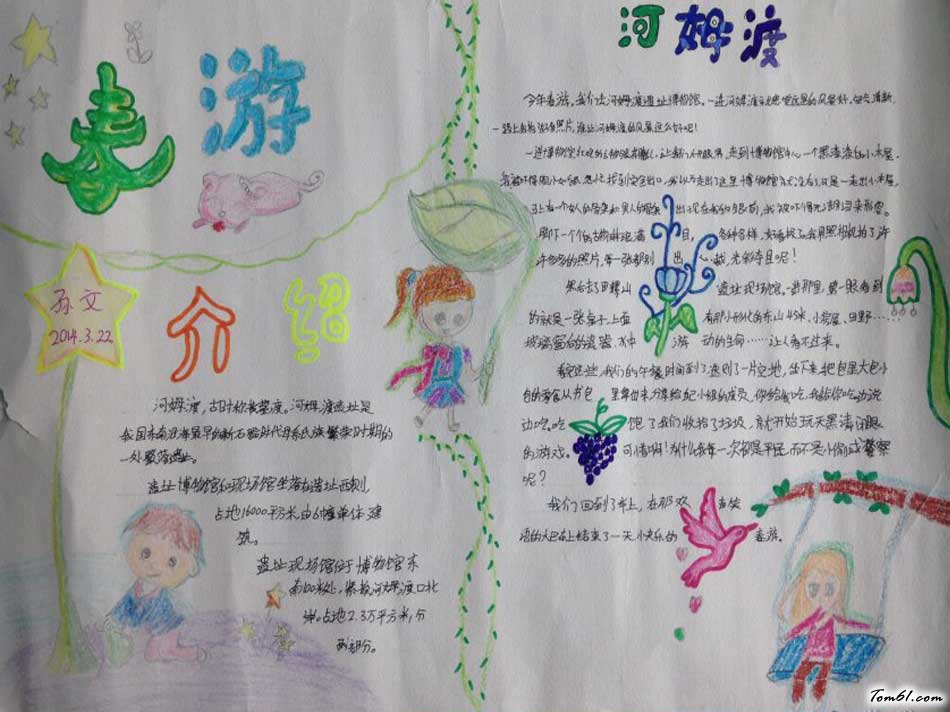 春游
孙文
2014.3.22
介绍
河姆渡,古时称黄墓渡。河姆渡遗址是
我国东南沿海最早的新石器时代母系氏族繁荣时期的
一处聚落遗址。
遗址博物馆和现场馆坐落在遗址西侧,
占地16000平方米,由6幢单体建
筑。
遗址现场馆位于博物馆东
南100米处,紧挨河姆渡口北
占地2.3万平方米,分
两部份。
河姆渡
今年春游,我们去河姆渡遗址博物馆。一进河姆渡
一路上 照片,谁让河姆渡的风景这么好呢!
一进博物馆 走到博物馆中心,一个黑漆漆的小木屋,
找到安全出口,我以为走出了这里博物馆 可是一走出小木屋,
马上有一个女人的骨架和男人的骨架出现在我的眼前,
剩下一个个的古物琳琅满目,各种各样, 我用照相机拍了许
许多多的照片,每一张都别出心裁,光彩夺目呢!
然后去了田螺山遗址现场馆。进那里,第一眼看到
的就是一张桌子,上面有那小形状的东山 小房屋、田野……
玻璃窗内的瓷器、水中游动的生命……让人看不过来。
看完这些,我们的午餐时间到了,选到了一片空地,坐下来,把包里大包小
包的零食从书包里拿出来,分享给我小组的成员,你给我吃,我给你吃,边说
边吃。吃饱了我们收拾了垃圾,就开始玩天黑请闭眼
的游戏。可惜啊!为什么我每一次都是平民,而不是小偷或警察
呢?
我们回到了车上,在那欢声笑
语的大巴车上结束了一天快乐的春游。
Tom61.com